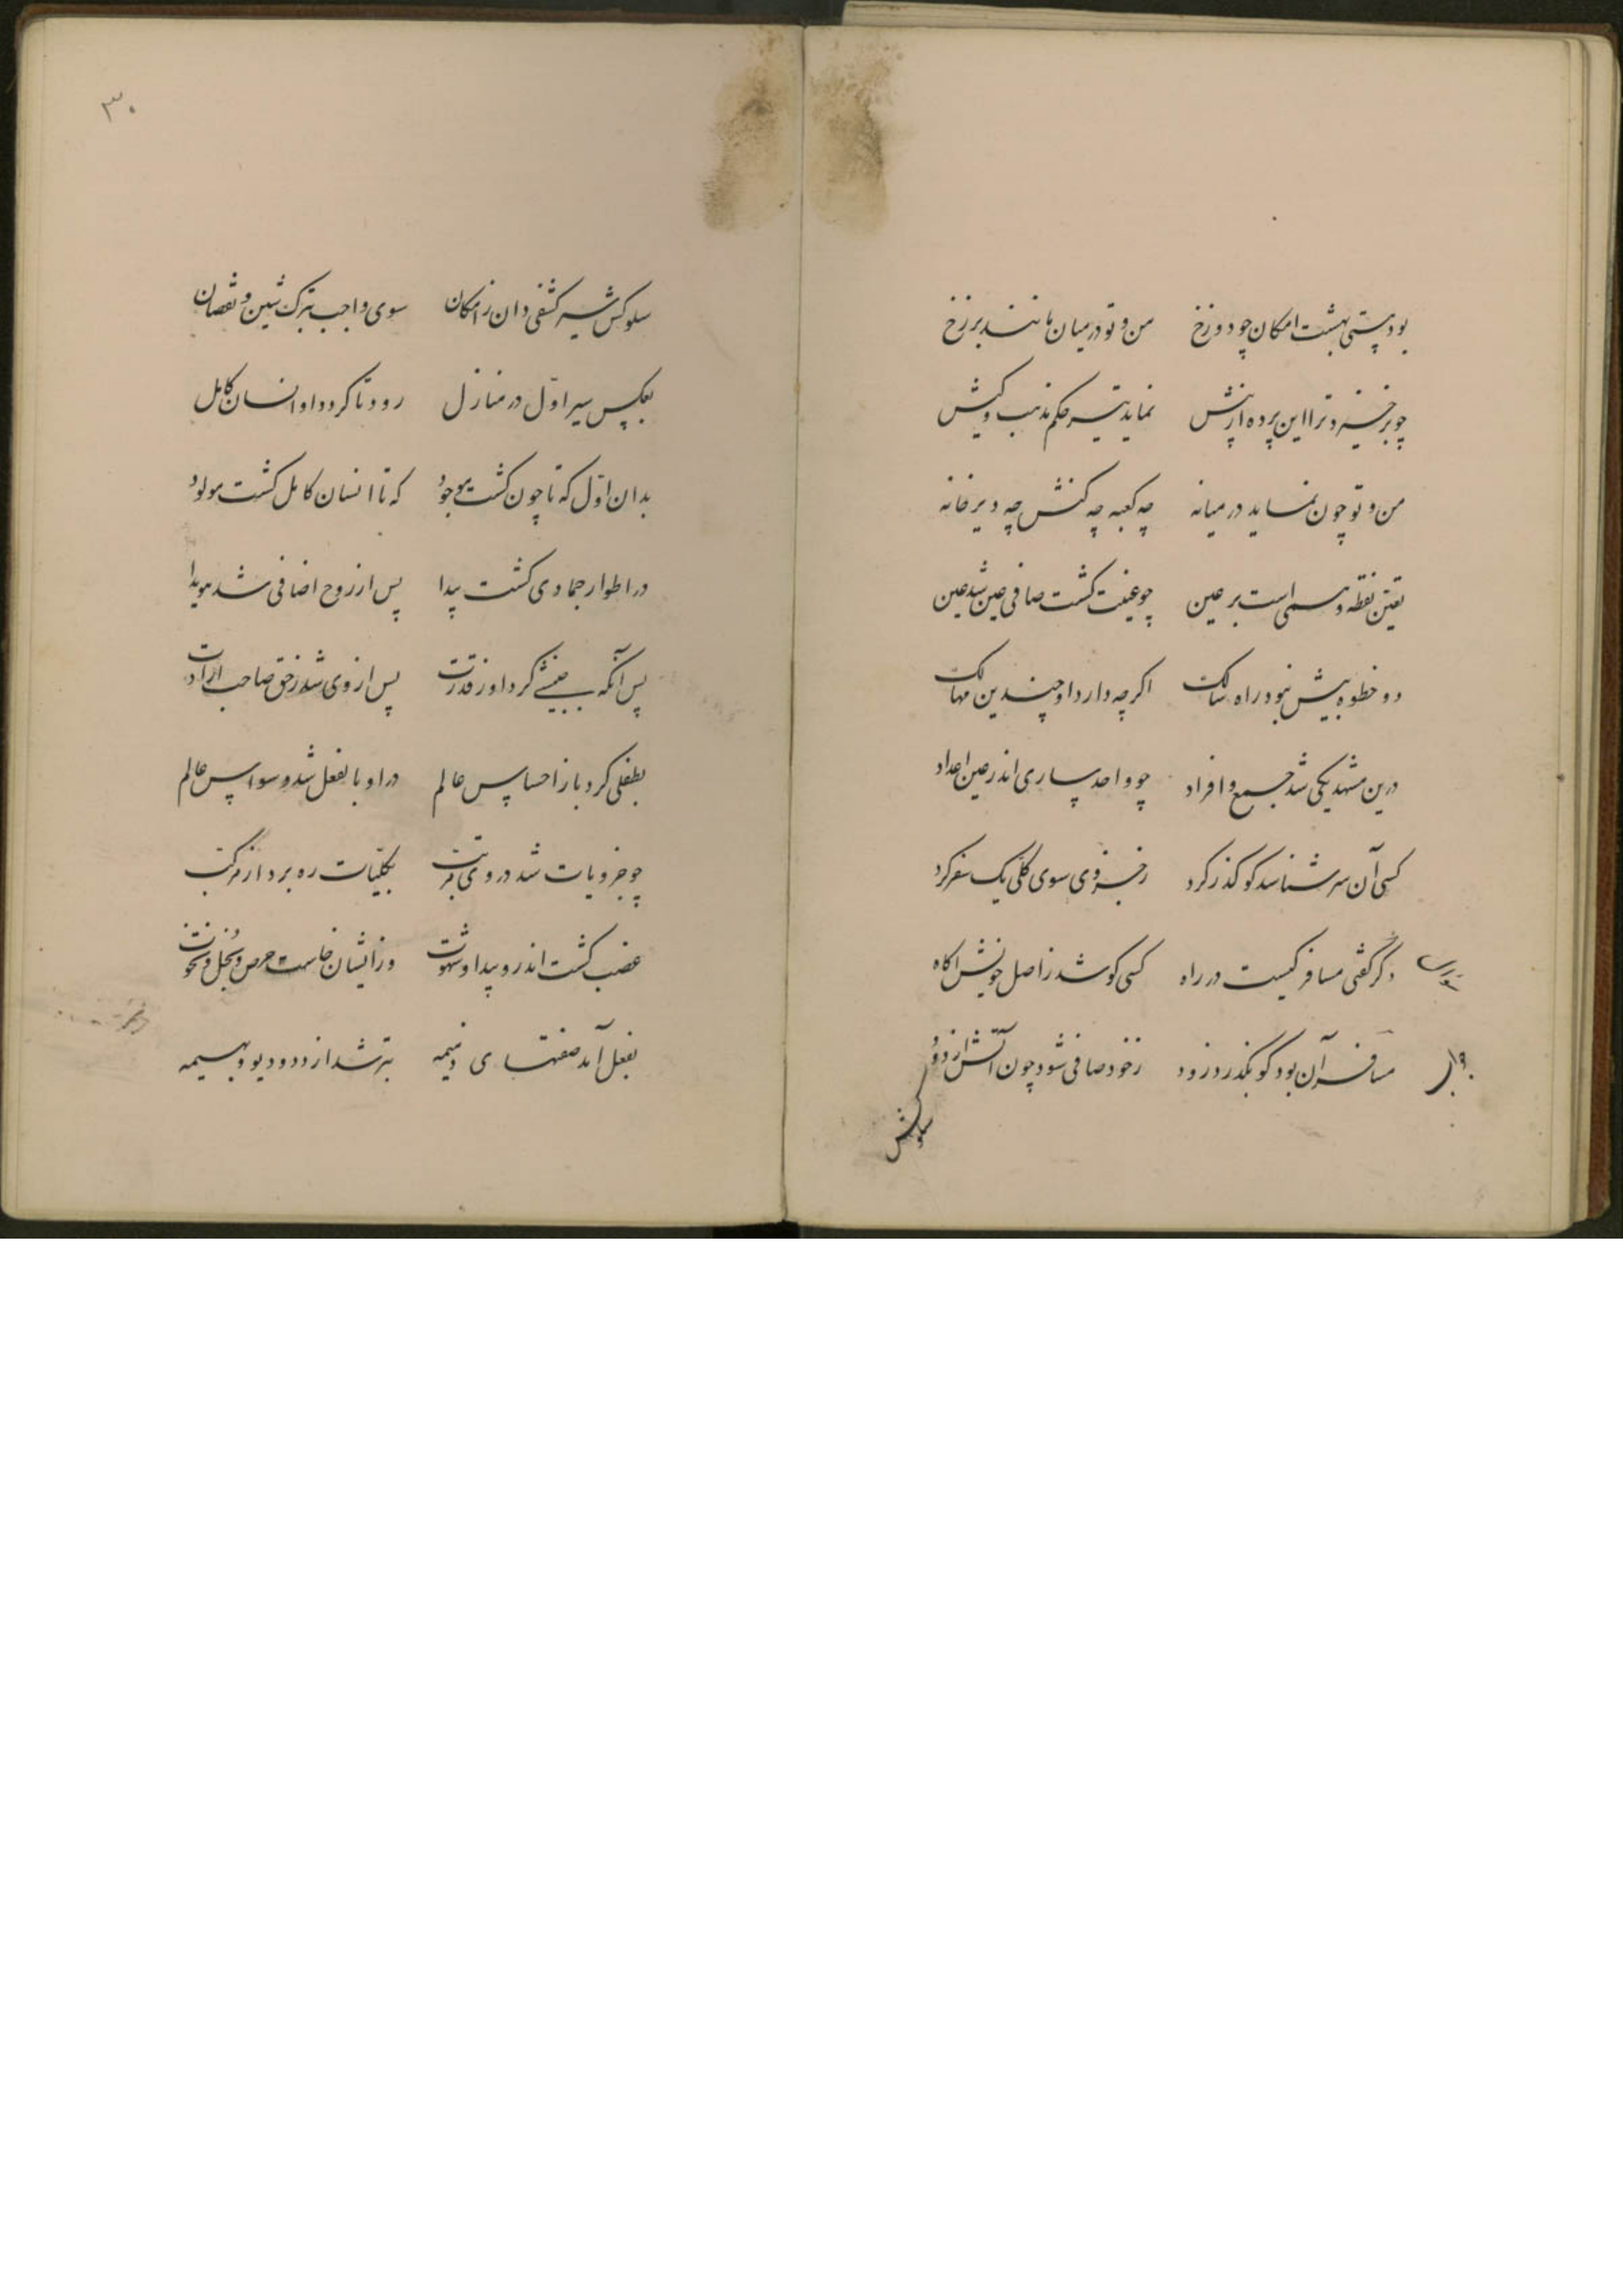 بود هستی بهشت امکان چو دوزخ من و تو در میان مانند برزخ
چو برخیزد ترا این پرده از پیش نماند نیز حکم مذهب و کیش
من و تو چون نماید در میانه چه کعبه چه کنش چه دیر خانه
تعین نقطه وهمی است بر عین چو غینت کشت صافی عین شد عین
دو خطوه بیش نبود راه سالک اکرچه دارد او چندین مهالک
درین مشهد یکی شد جمع و افراد چو واحد ساری اندر عین اعداد
کسی آن سر شناسد کو کذر کرد ز جزوی سوی کلی یک سفر کرد
دکر کفتی مسافر کیست در راه کسی کو شد ز اصل خویش اکاه
مسافر آن بود کو بکذرد زود ز خود صافی شود چون آتش از دود
سلوکش
۳۰
سلوکش سیر کشفی دان ز امکان سوی واجب بترک شین و نقصان
بعکس سیر اول در منازل رود تا کردد او انسان کامل
بدان اول که تا چون کشت موجود که تا انسان کامل کشت مولود
در اطوار جمادی کشت پیدا پس از روح اضافی شد هویدا
پس آنکه جنبشی کرد او ز قدرت پس از وی شد ز حق صاحب ارادت
بطفلی کرد باز احساس عالم در او بالفعل شد وسواس عالم
چو جزویات شد در وی مرتب بکلیات ره برد از مرکب
غضب کشت اندرو پیدا و شهوت وز ایشان خاست حرص و بخل و نخوت
بفعل آمد صفتهای ذمیمه بتر شد از دد و دیو و بهیمه